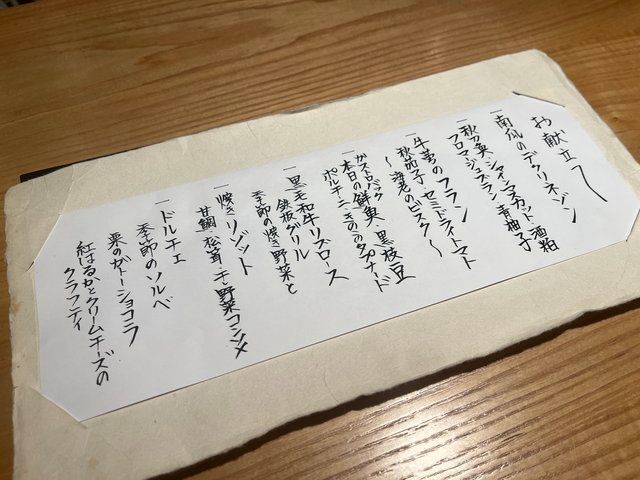 お献立
一 南瓜のデクリネゾン
一 秋刀魚・シャインマスカット・酒粕
フロマージュブラン・青柚子
一 牛蒡のフラン
秋茄子・セミドライトマト
〜海老のビスク〜
ガストロバック
一 本日の鮮魚・黒枝豆
ポルチーニ・きのこのタプナード
一 黒毛和牛リブロース
鉄板グリル
季節の焼き野菜と
一 焼きリゾット
甘鯛・松茸・干し野菜コンソメ
一 ドルチェ
季節のソルベ
栗のガトーショコラ
紅はるかとクリームチーズの
クラフティ